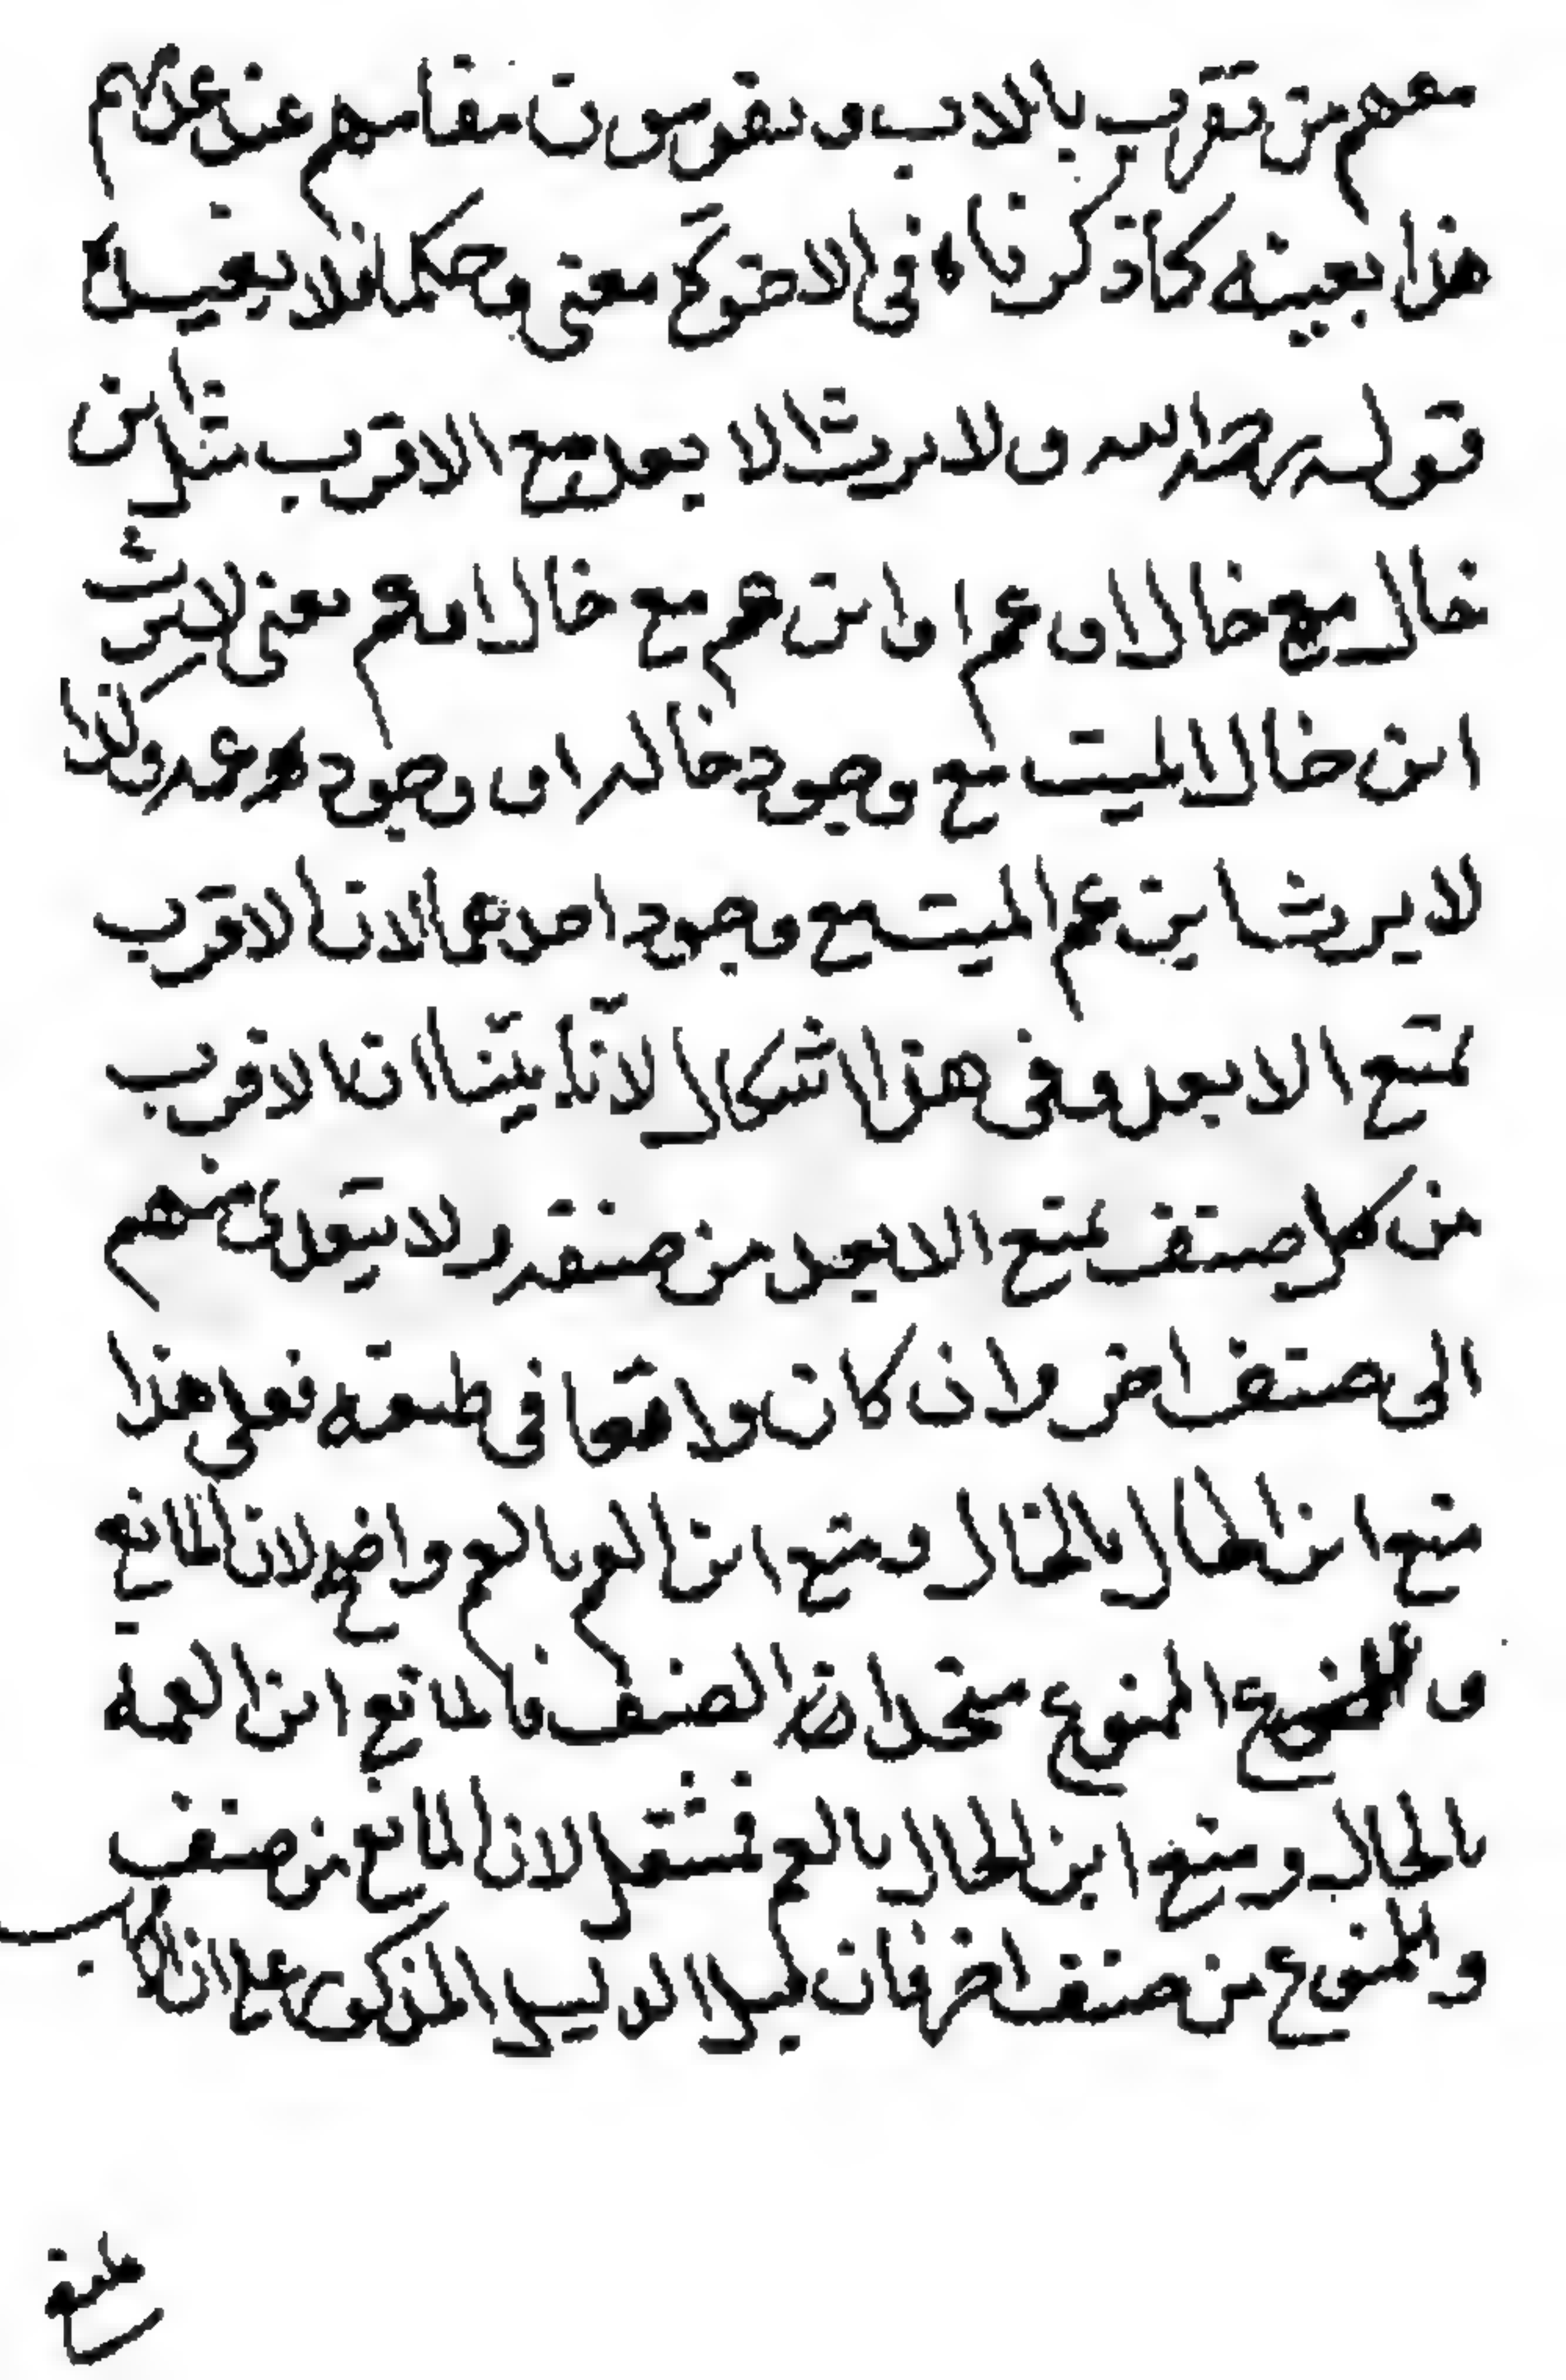 معهم من تقرب بالاب و يقومون مقامهم عند عدمهم
هذا بعينه كما ذكرناه في الاخوة معنى وحكما فلا يعيد
قوله رحمه الله ولا يرث الا بعد مع الاقرب مثل ابن
خال مع خال او عم او ابن عم مع خال او عم يعني لا يرث
ابن خال الميت مع وجود خاله او وجود عمه وكذا
لا يرث ابن عم الميت مع وجود احدهما لان الاقرب
يمنع الابعد وفي هذا اشكال لانّا بيّنا ان الاقرب
من كل صنف يمنع الابعد من صنفه ولا يتعدى منهم
الى صنف اخر وان كان واقعا في طبقته فعلى هذا
منع ابن الخال بالخال و منع ابن العم بالعم واضح لان المانع
و الممنوع متحدان في الصنف فاما منع ابن العمة
بالخال و منع ابن الخال بالعم فمشكل لان المانع من صنف
والممنوع من صنف اخر فان قيل الدليل المذكور على ان كل